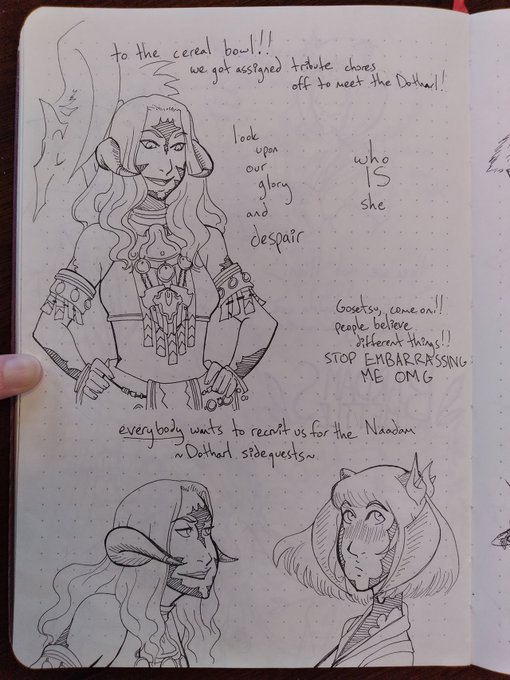 to the cereal bowl!!
we got assigned tribute chores
off to meet the Dotharl!
look
upon
our
glory
and
despair
who
IS
she
Gosetsu, come on!!
people believe
different things!!
STOP EMBARRASSING
ME OMG
everybody wants to recruit us for the Naadam
~Dotharl sidequests~